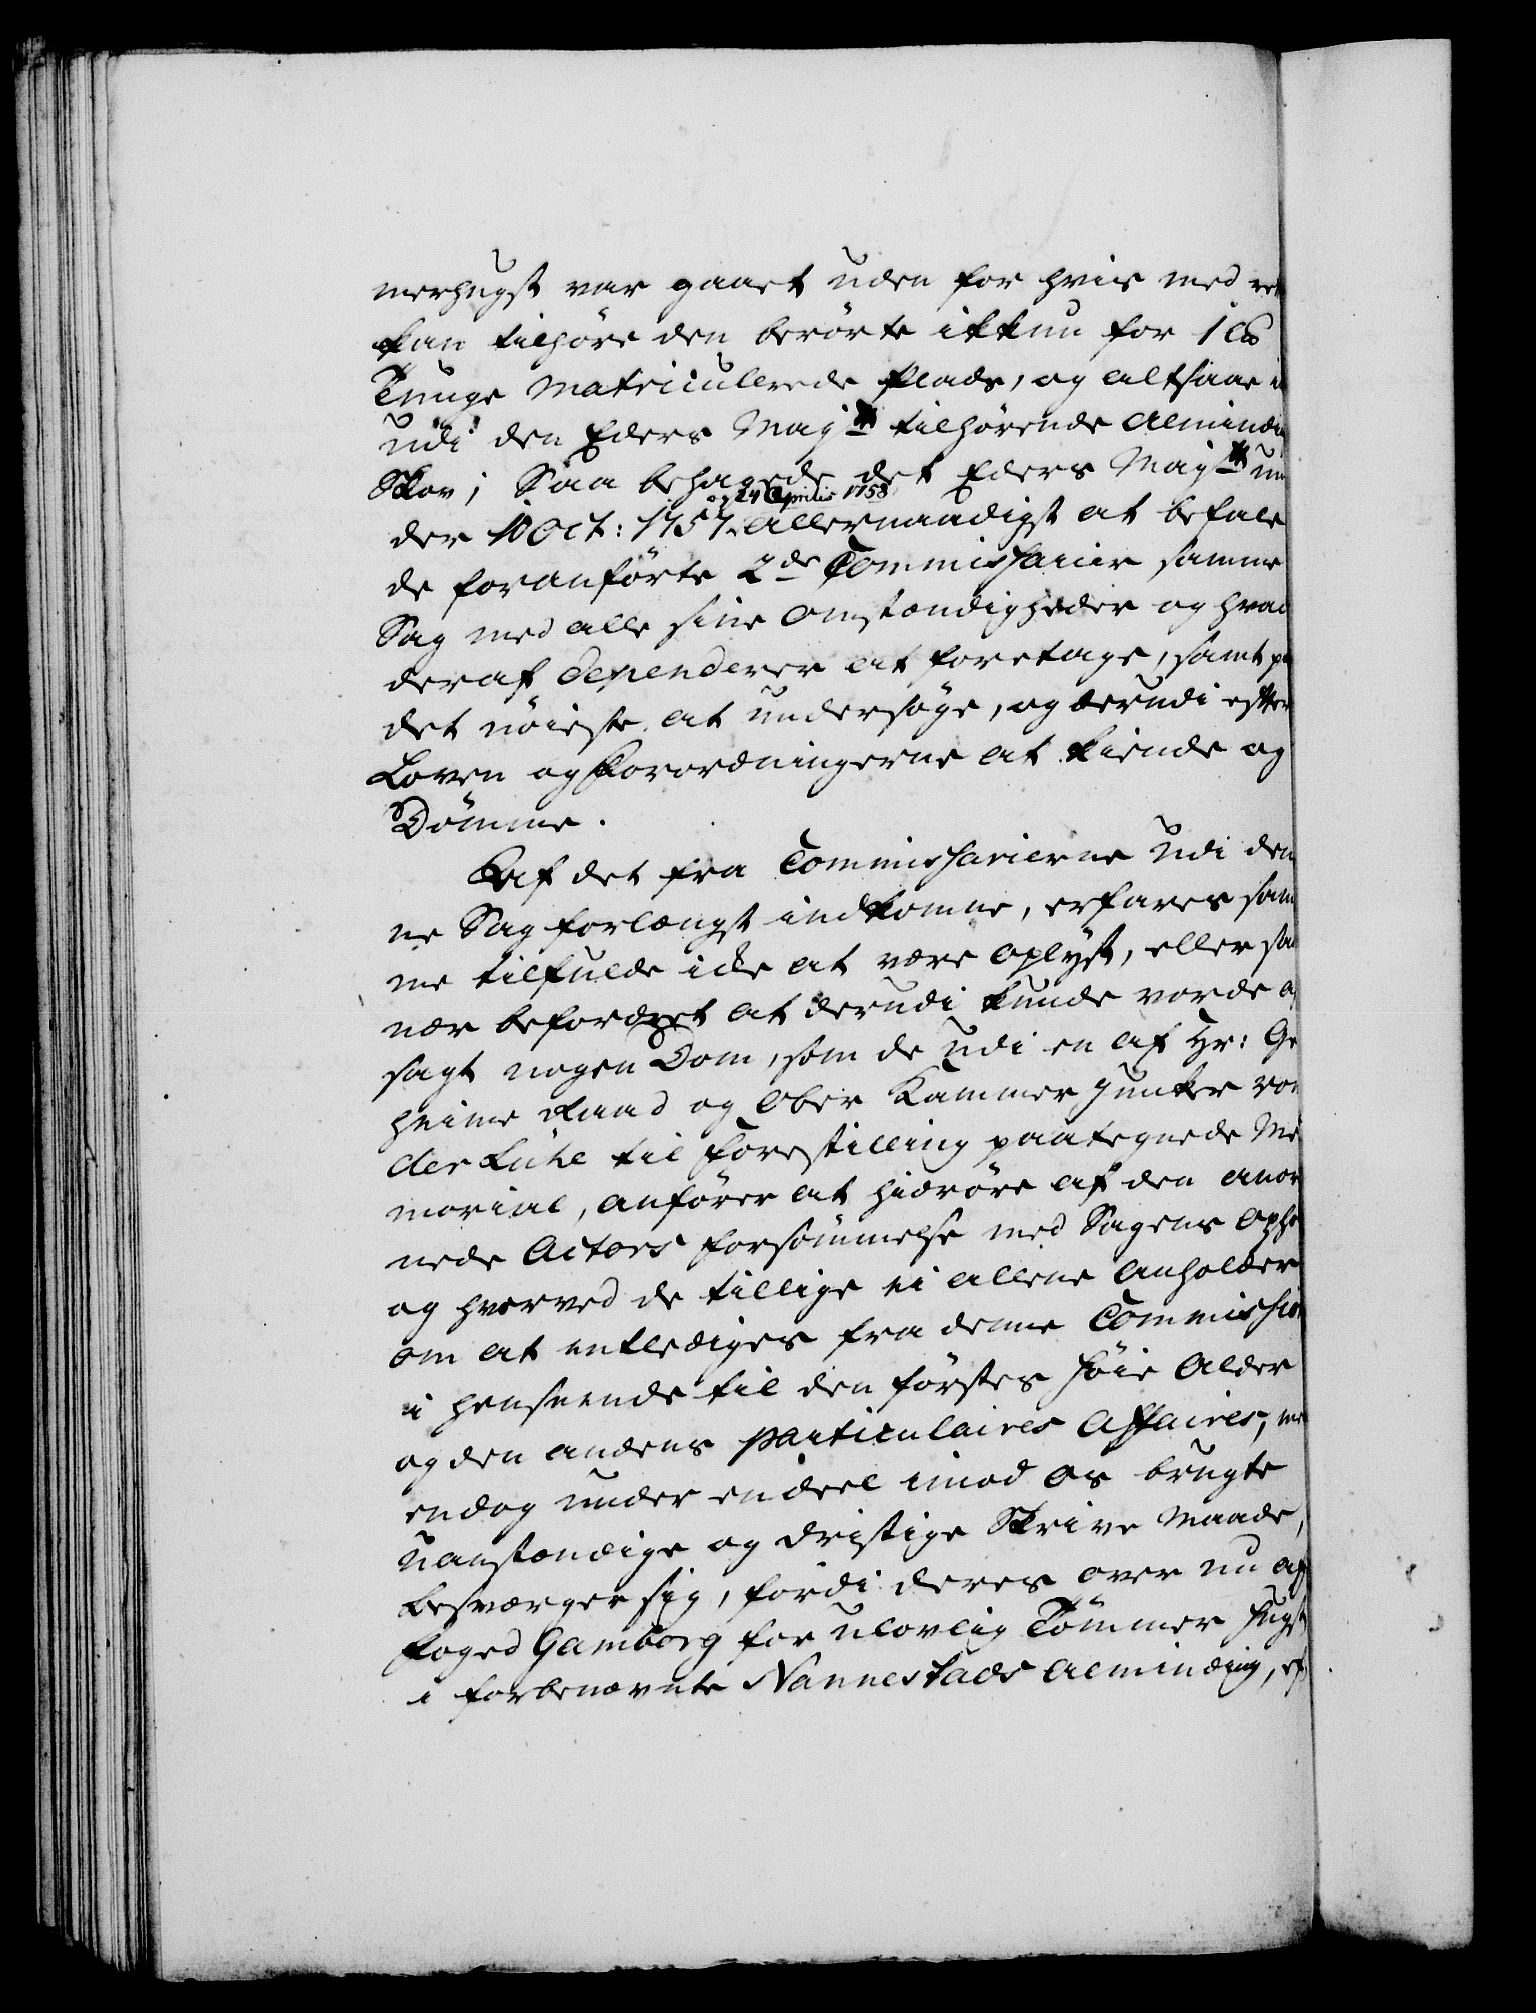 merhugst var gaaet uden for hvis med ret
kan tilhøre den berørte ikkun for 1 
Tunge Matriculerede Plads, og altsaae i
udi den Eders Maj:tt tilhørende Alminding
Skov; Saa behagede det Eders Maj:tt un
og 24 Aprilis 1758
der 10 Oct: 1757. allernaadigst at befale
de foranførte 2de Commissarier samme
Sag med alle sine Omstændigheder og hvad
deraf dependerer at foretage, samt paa
det nøieste at undersøge, og derudi efter
Loven og Forordningerne at kiende og
Dømme.
Af det fra Commissarierne udi den
ne Sag forlængst indkomne, erfares sam
me tilfulde icke at være oplyst, eller saa
vær befordret at derudi kunde vorde af
sagt nogen Dom, som de udi en af Hr: Ge
heime Raad og Ober Kammer Junker von
der Lühe til Forestilling paategnede Me
morial, anfører at hidrøre af den anor
nede Actors forsømmelse med Sagens Opho
og hvorved de tillige ei allene anholder
om at entlediges fra denne Commission
i henseende til den førstes høie Alder
og den andens particulaires Affaires, men
endog under en deel imod os brugte
uanstændige og dristige Skrive Maade,
besværger sig, fordi deres over nu af
Foged Gamborg for ulovlig Tømmer hugst
i forbenævnte Nannestads Alminding, ef